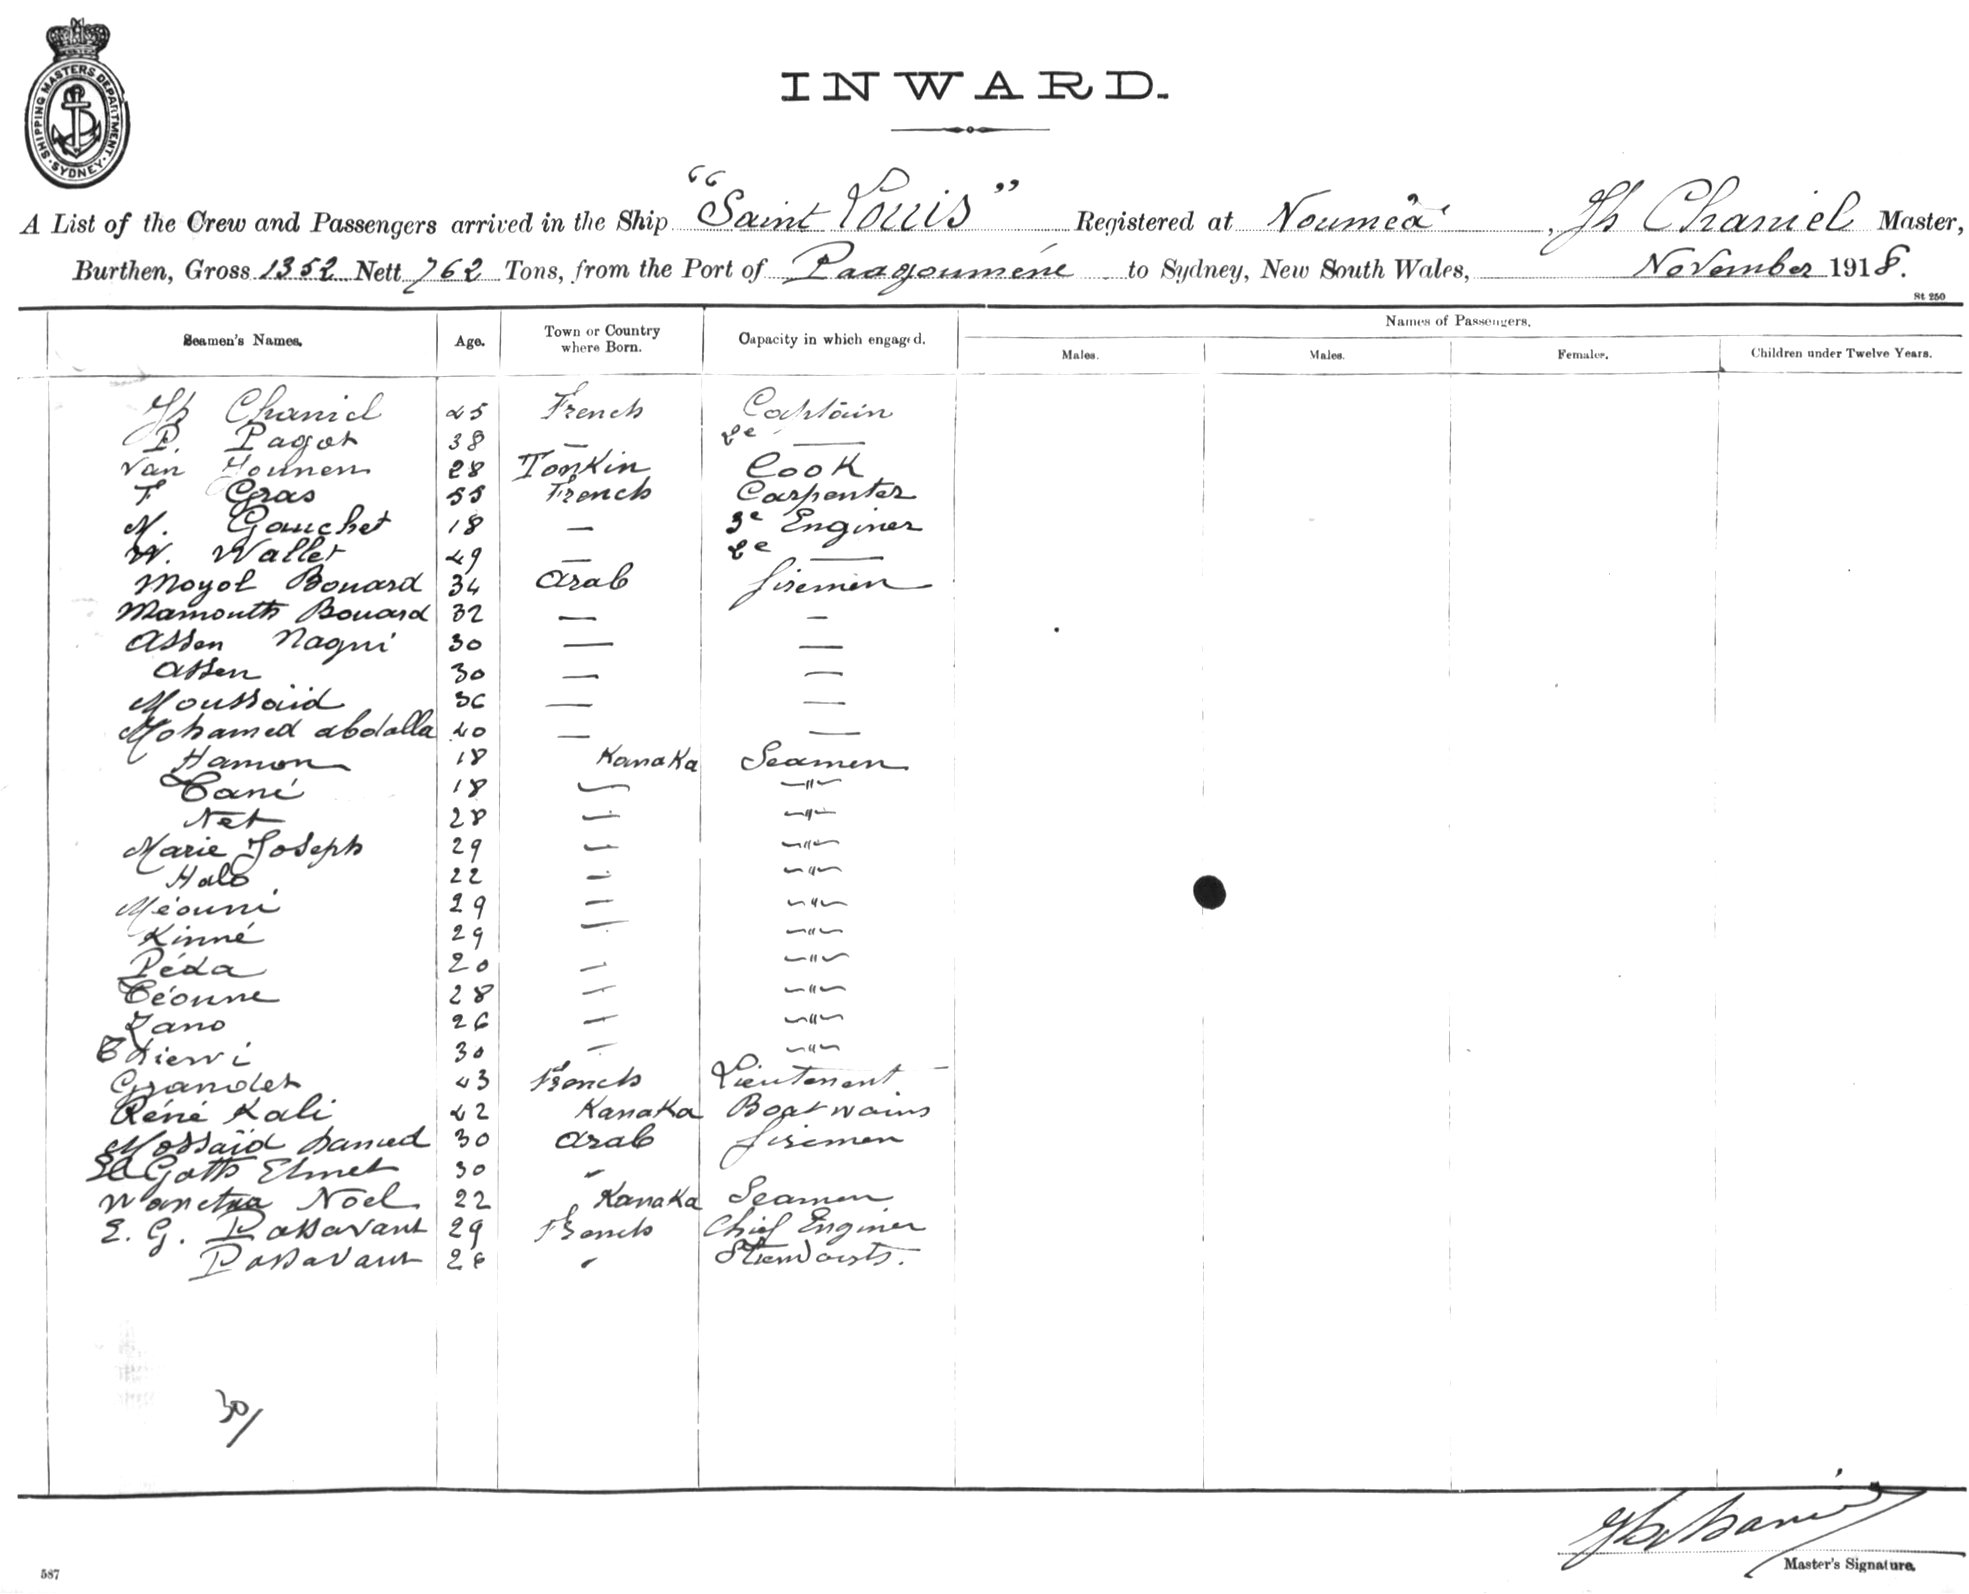 SHIPPING MASTERS DEPARTMENT. SYDNEY
INWARD.
A List of the Crew and Passengers arrived in the Ship "Saint Louis" Registered at Nouméa, Jh Chaniel Master,
Burthen, Gross 1352 Nett 762 Tons, from the Port of Paagoumène to Sydney, New South Wales, November 1918.
St 250
Seamen's Names. Age. Town or Country where Born. Capacity in which engaged. Names of Passengers.
Males. Males. Females. Children under Twelve Years.
Jh Chaniel 45 French Captain
P. Pagot 38 — 2e —
Van Hounen 28 Tonkin Cook
F Gras 55 French Carpenter
N. Gauchet 18 — 3e Enginer
W. Wallet 49 — 2e —
Moyol Bouard 34 Arab firemen
Mamouth Bouard 32 — —
Assen Nagni 30 — —
Assen 30 — —
Moussaïd 36 — —
Mohamed abdalla 40 — —
Hamon 18 Kanaka Seamen
Cané 18 — —"—
Net 28 — —"—
Marie Joseph 29 — —"—
Halo 22 — —"—
Méouni 29 — —"—
Kinné 29 — —"—
Péda 20 — —"—
Céoune 28 — —"—
Zano 26 — —"—
30 — —"—
Grandet 43 French Lieutenant
Réné Kali 42 Kanaka Boatwains
Mossaïd hamed 30 Arab firemen
El Goth Elmet 30 "
Noel 22 Kanaka Seamen
E. G. Passavant 29 French Chief Enginer
Passavant 26 "
30/
Master's Signature.
587